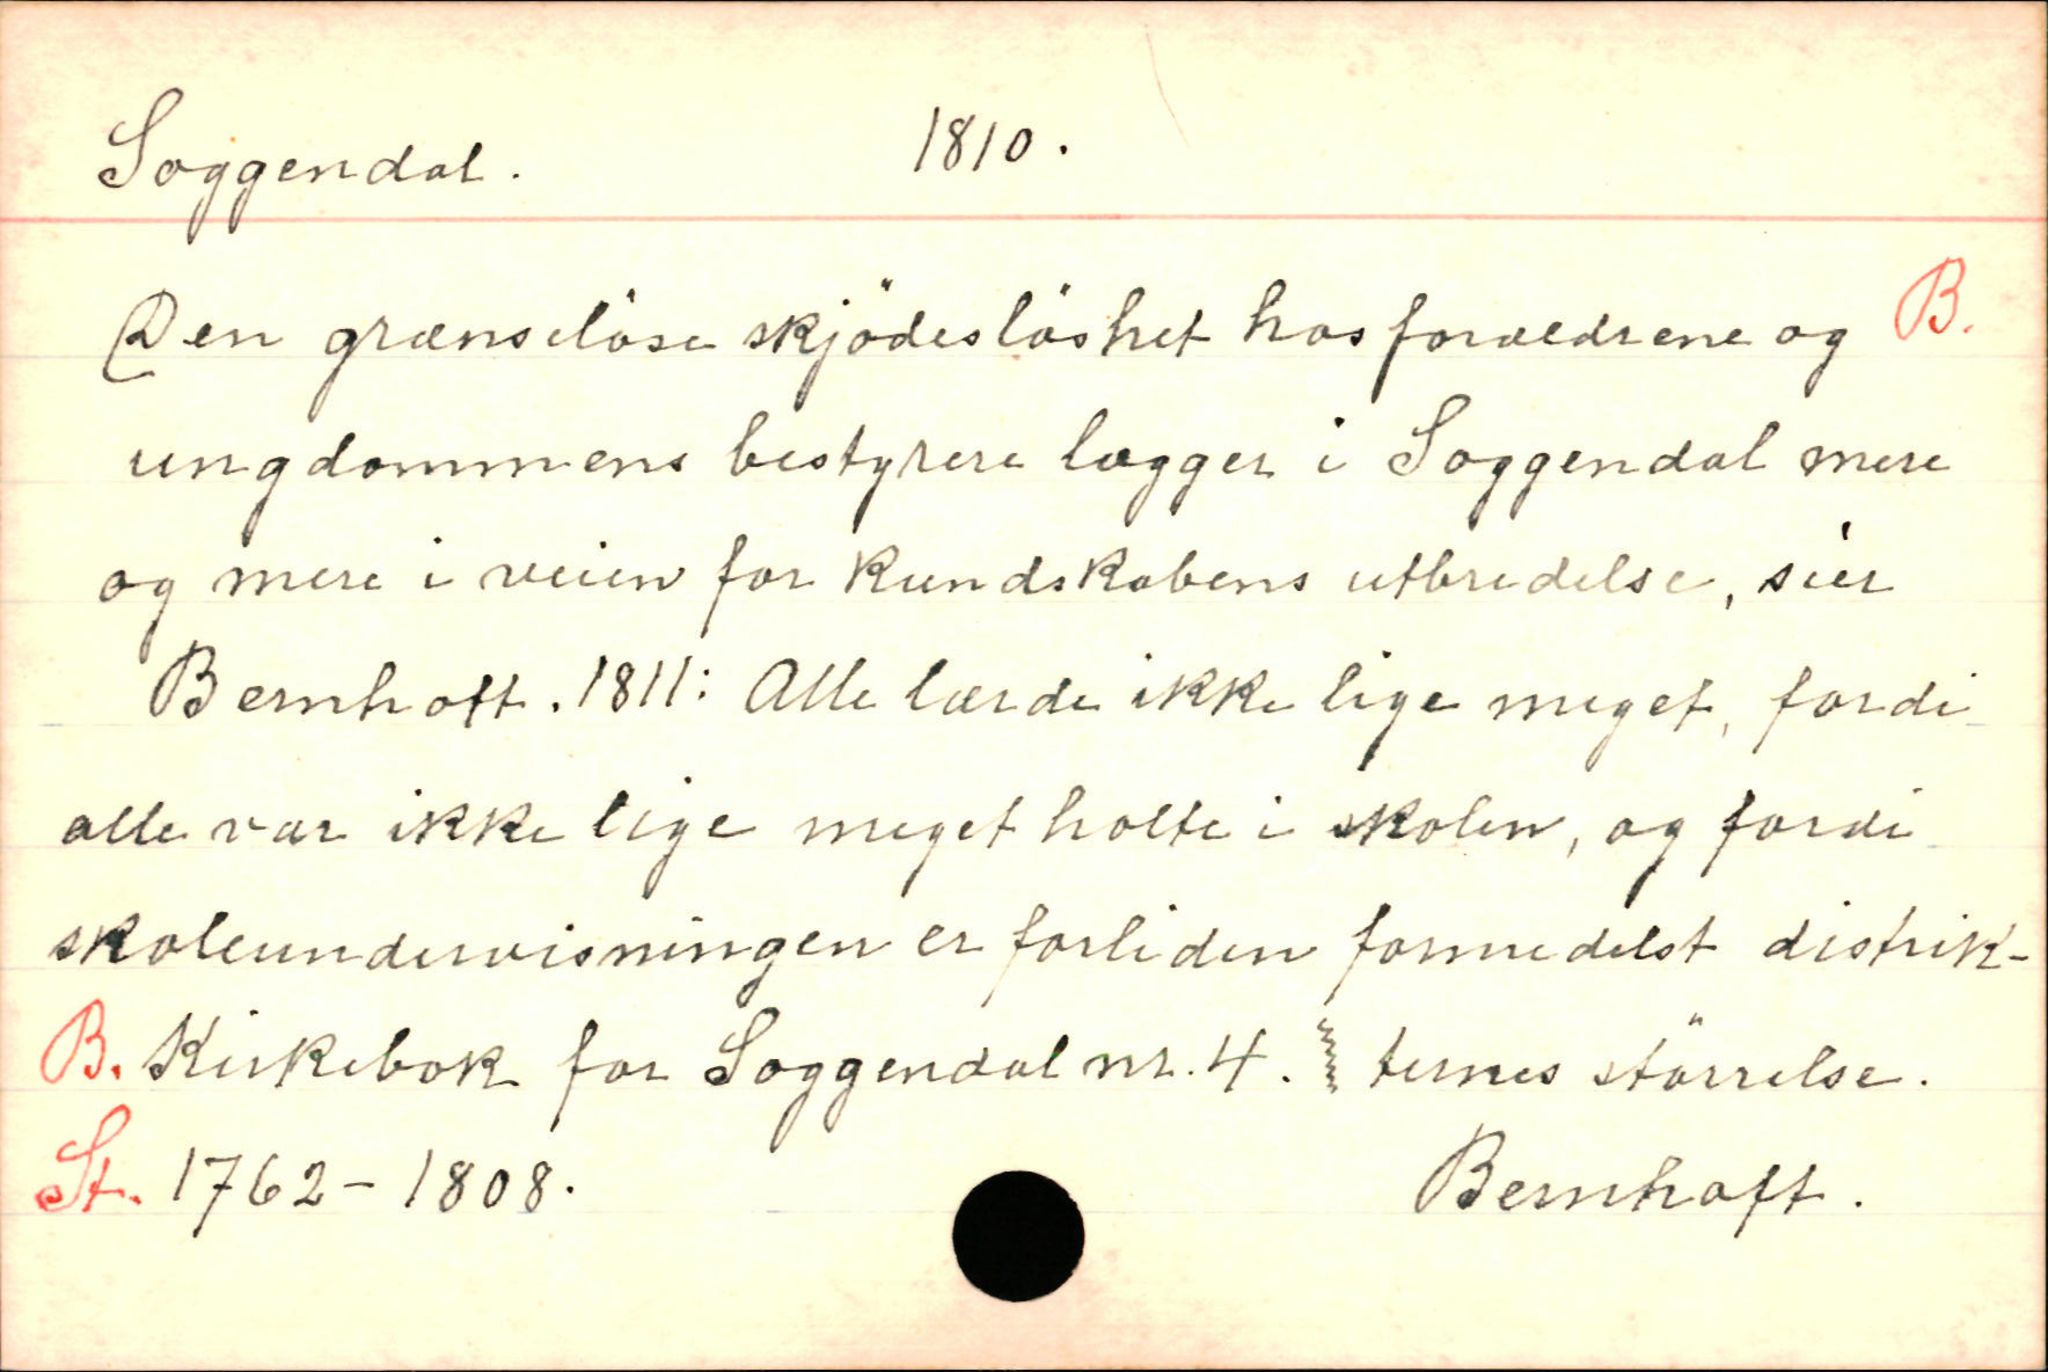 Soggendal. 1810.
Den grænselöse skjödeslöshet hos forældrene og B.
ungdommens bestyrere lægger i Soggendal mere
og mere i veien for kundskabens utbredelse, sier
Bernhoft. 1811: Alle lærde ikke lige meget, fordi
alle var ikke lige meget holte i skolen, og fordi
skoleundervisningen er forliden formedelst distrik-
B. Kirkebok for Soggendal nr. 4. ternes störrelse.
St. 1762-1808. Bernhoft.